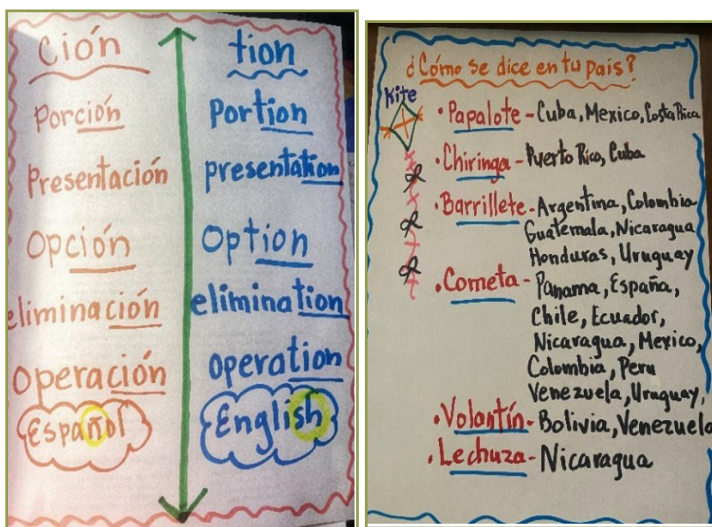 ción
tion
Porción
Portion
Presentación
presentation
Opción
Option
eliminación
elimination
Operación
operation
Español
English
¿Cómo se dice en tu pais?
Kite
• Papalote - Cuba, Mexico, Costa Rica
• Chiringa - Puerto Rico, Cuba
• Barrillete - Argentina, Colombia
Guatemala, Nicaragua
Honduras, Uruguay
• Cometa - Panama, España,
Chile, Ecuador,
Nicaragua, Mexico,
Colombia, Peru
Venezuela, Uruguay,
• Volantín - Bolivia, Venezuela
• Lechuza - Nicaragua